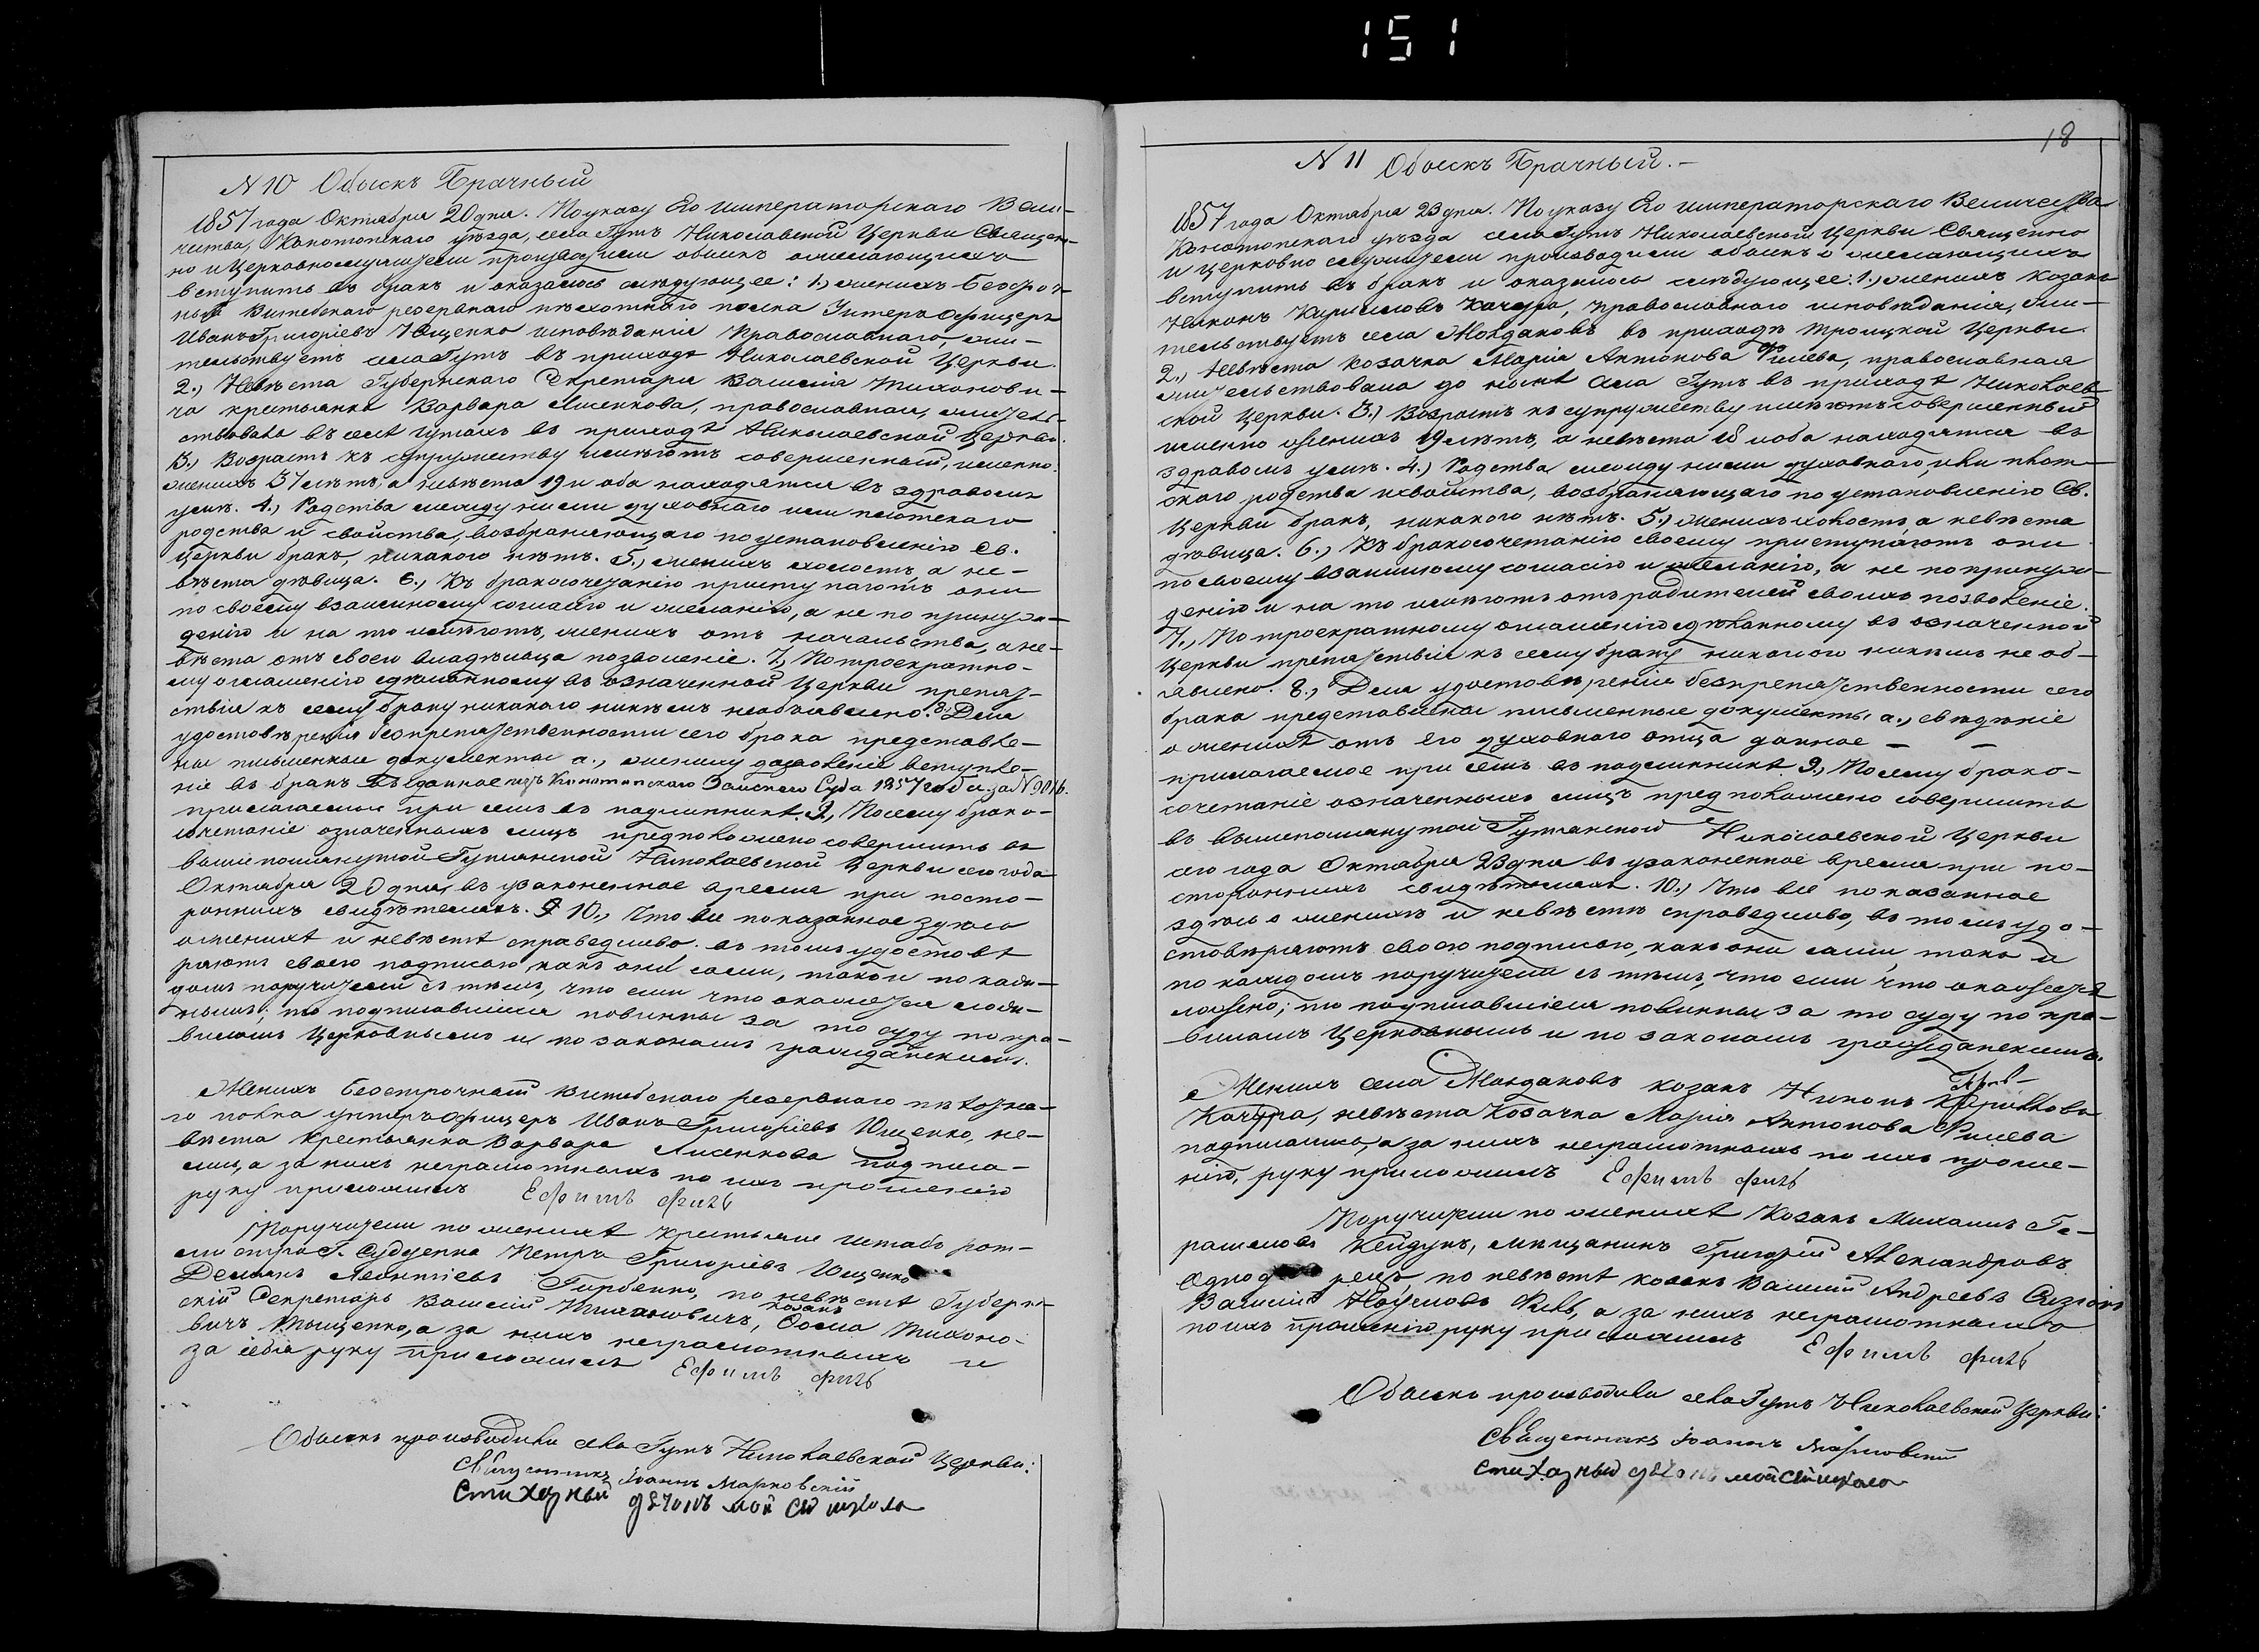 151
N 10 Обыскъ Брачный
1857 года Октября 20 дня. По указу Его Императорскаго Вели-
чества, Конотопскаго уѣзда, села Гутъ Николаевской Церкви Священ-
но и Церковнослужители производили обыскъ о желающихъ
вступить въ бракъ и оказалось слѣдующее: 1.) женихъ безсроч-
ный Витебскаго резервнаго пѣхотнаго полка Унтеръ Офицеръ
Иванъ Григоріевъ Ющенко исповѣданія Православнаго, жи-
тельствуетъ села Гутъ въ приходѣ Николаевской Церкви.
2.) Невѣста Губернскаго Секретаря Василія Тихонови-
ча крестьянка Варвара Лисенкова, православная, житель-
ствовала въ селѣ Гутахъ въ приходѣ Николаевской Церкви.
3.) Возрастъ къ супружеству имѣютъ совершенный, именно:
женихъ 37 лѣтъ, а невѣста 19 и оба находятся въ здравомъ
умѣ. 4.) Родства между ними духовнаго или плотскаго
родства и свойства, возбраняющаго по установленію Св.
Церкви бракъ, никакого нѣтъ. 5.) женихъ холостъ, а не-
вѣста дѣвица. 6.) Къ бракосочетанію приступаютъ они
по своему взаимному согласію и желанію, а не по принуж-
денію и на то имѣютъ, женихъ отъ начальства, а не-
вѣста отъ своего владѣльца позволеніе. 7.) По троекратно-
му оглашенію сдѣланному въ означенной Церкви препят-
ствія къ сему браку никакого никѣмъ необъявлено. 8. Для
удостовѣренія безпрепятственности сего брака представле-
ны письменные документы а.) жениху дозволеніе вступле-
ніе въ бракъ данное изъ Конотопскаго Земскаго Суда 1857 года за N 9016.
прилагаемые при семъ въ подлинникѣ. 9.) Посему брако-
сочетаніе означенныхъ лицъ предположено совершить въ
вышепомянутой Гутянской Николаевской Церкви сего года
Октября 20 дня, въ узаконенное время при посто-
роннихъ свидѣтеляхъ. 10.) Что все показанное здѣсь о
женихѣ и невѣстѣ справедливо. въ томъ удостовѣ
ряютъ своею подписью, какъ они сами, такъ и по каж-
домъ поручители съ тѣмъ, что если что окажется лож-
нымъ; то подписавшіеся повинны за то суду по пра-
виламъ Церковнымъ и по законамъ гражданскимъ.
Женихъ безсрочный Витебскаго резервнаго пѣхотна-
го полка унтеръ офицеръ Иванъ Григоріевъ Ющенко, не-
вѣста крестьянка Варвара Лисенкова подписа-
лись, а за нихъ неграмотныхъ по ихъ прошенію
руку приложилъ Ефимъ Филь
Поручители по женихѣ крестьяне штабъ рот-
мистра Г. Судденка Петръ Григоріевъ Ющенко
Демьянъ Леонтіевъ Горбенко, по невѣстѣ Губерн-
скій Секретарь Василій Тихоновичъ, козакъ Ѳома Тихоно-
вичъ Тищенко, а за нихъ неграмотныхъ и
за себя руку приложилъ Ефимъ Филь
Обыскъ производили села Гутъ Николаевской Церкви:
Священникъ Іоаннъ Марковскій
Стихарный дячокъ
18
N 11 Обыскъ Брачный.-
1857 года Октября 23 дня. По указу Его Императорскаго Величества
Конотопскаго уѣзда села Гутъ Николаевской Церкви Священно
и церковно служители производили обыскъ о желающихъ
вступить въ бракъ и оказалось слѣдующее: 1.) женихъ козакъ
Никонъ Кириловъ Качура, православнаго исповѣданія, жи-
тельствуетъ села Молдаковъ въ приходѣ Троицкой Церкви.
2.) Невѣста козачка Марія Антонова Филева, православная
жительствовала до нынѣ села Гутъ въ приходѣ Николаев-
ской Церкви. 3.) Возрастъ къ супружеству имѣютъ совершенный
именно женихъ 19 лѣтъ, а невѣста 18 и оба находятся въ
здравомъ умѣ. 4.) Родства между ними духовнаго, или плот-
скаго родства и свойства, возбраняющаго по установленію Св.
Церкви бракъ, никакого нѣтъ. 5.) женихъ холостъ, а невѣста
дѣвица. 6.) Къ бракосочетанію своему приступаютъ они
по своему взаимному согласію и желанію, а не по принуж-
денію и на то имѣютъ отъ родителей своихъ позволеніе.
7.) По троекратному оглашенію сдѣланному въ означенной
Церкви препятствія къ сему браку никакого никѣмъ не об-
явлено. 8.) Для удостовѣренія безпрепятственности сего
брака представлены письменные документы а.) свѣдѣніе
о женихѣ отъ его духовнаго отца данное — —
прилагаемое при семъ въ подлинникѣ 9.) Посему брако-
сочетаніе означенныхъ лицъ предположено совершить
въ вышепомянутой Гутянской Николаевской Церкви
сего года Октября 23 дня въ узаконенное время при по-
стороннихъ свидѣтеляхъ. 10.) Что все показанное
здѣсь о женихѣ и невѣстѣ справедливо, въ томъ удо-
стовѣряютъ своею подписью, какъ они сами, такъ и
по каждомъ поручители съ тѣмъ, что если что окажется
ложно; то подписавшіеся повинны за то суду по пра-
виламъ Церковнымъ и по законамъ гражданскимъ.
Женихъ села Молдаковъ козакъ Никонъ Кириловъ
Качура, невѣста козачка Марія Антонова Филева
подписались, а за нихъ неграмотныхъ по ихъ проше-
нію, руку приложилъ Ефимъ Филь
Поручители по женихѣ Козакъ Михаилъ Ге-
расимовъ Кейдунъ, мѣщанинъ Григорій Александровъ
по невѣстѣ козакъ Василій Андреевъ
Василій Наумовъ Филь, а за нихъ неграмотныхъ
по ихъ прошенію руку приложилъ Ефимъ Филь
Обыскъ производили села Гутъ Николаевской Церкви:
Священникъ Іоаннъ Марковскій
Стихарный дячокъ